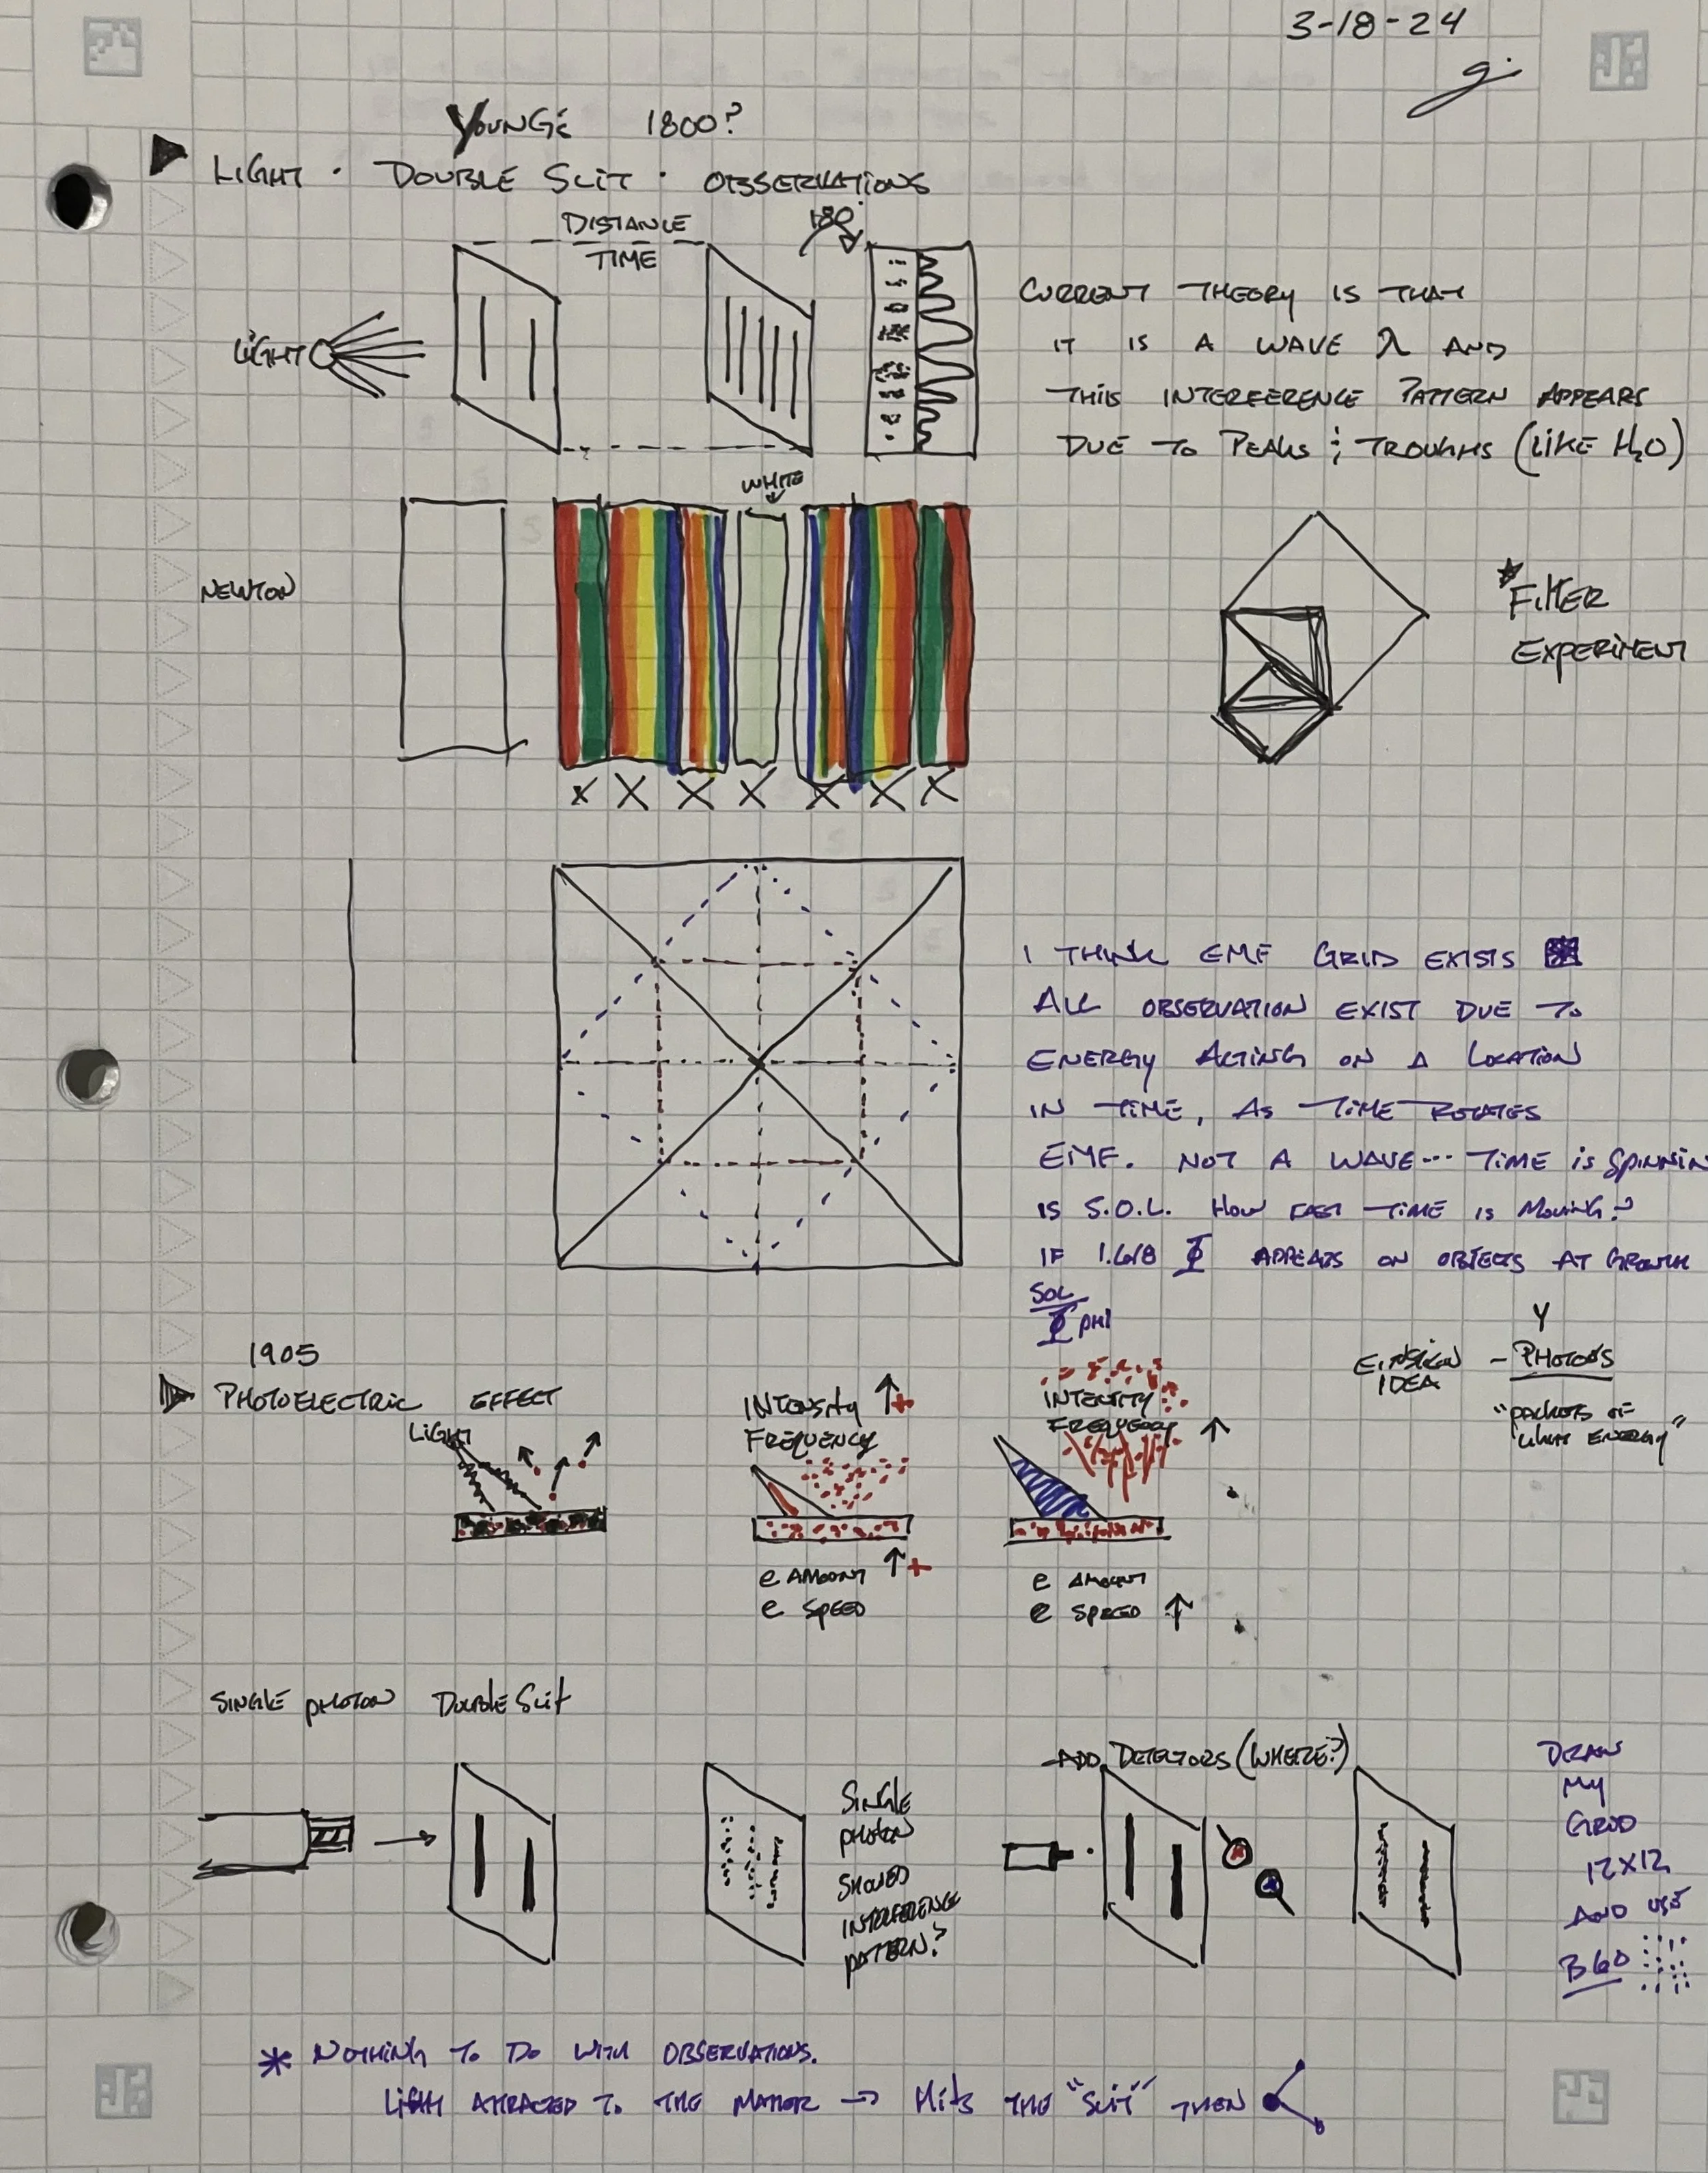 3-18-24
YOUNGE 1800?
LIGHT · DOUBLE SLIT · OBSERVATIONS
DISTANCE
TIME
180°
LIGHT
CURRENT THEORY IS THAT
IT IS A WAVE λ AND
THIS INTERFERENCE PATTERN APPEARS
DUE TO PEAKS & TROUGHS (LIKE H2O)
WHITE
NEWTON
X X X X X X X
* FILTER
EXPERIMENT
I THINK EMF GRID EXISTS
ALL OBSERVATION EXIST DUE TO
ENERGY ACTING ON A LOCATION
IN TIME, AS TIME ROTATES
EMF. NOT A WAVE... TIME IS SPINNIN
IS S.O.L. HOW FAST TIME IS MOVING?
IF 1.618 Φ APPEARS ON OBJECTS AT GROWTH
SOL
Φ PHI
1905
PHOTOELECTRIC EFFECT
LIGHT
INTENSITY ↑+
FREQUENCY
e AMOUNT ↑+
e SPEED
INTENSITY
FREQUENCY ↑
e AMOUNT
e SPEED ↑
Y
EINSTEIN IDEA – PHOTONS
"PACKETS OF
LIGHT ENERGY"
SINGLE PHOTON DOUBLE SLIT
SINGLE
PHOTON
SHOWED
INTERFERENCE
PATTERN?
ADD DETECTORS (WHERE?)
DRAW
MY
GRID
12X12
AND USE
B60
* NOTHING TO DO WITH OBSERVATIONS.
LIGHT ATTRACTED TO THE MATTER → HITS THE "SLIT" THEN